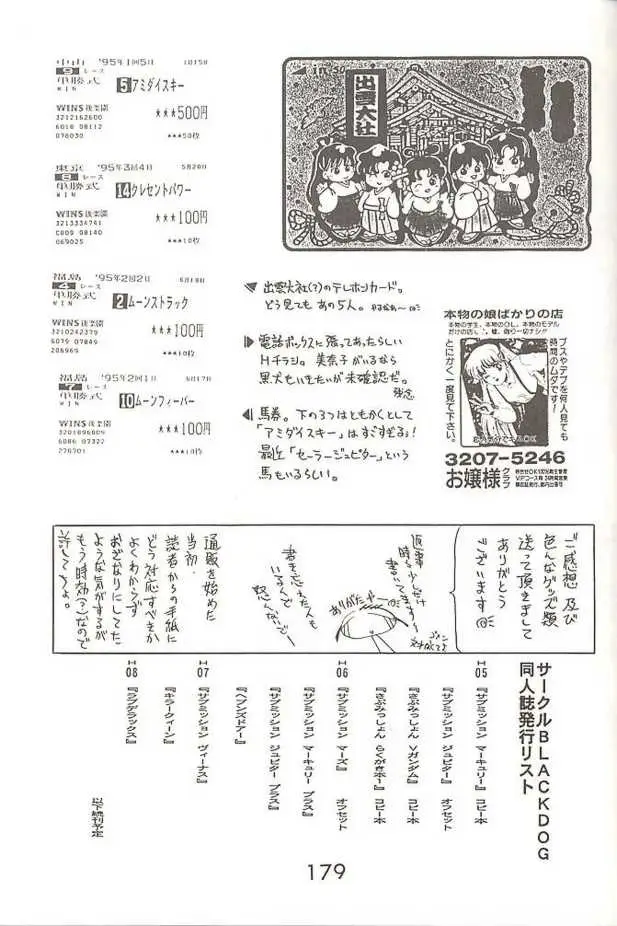 中山 '95年1回5日 1月15日
9レース
単勝式 5 アミダイスキー
WIN
WINS後楽園 ★★★500円
3212162600
6018 08112
078030 ★★★50枚
東京 '95年3回4日 5月28日
8レース
単勝式 14 クレセントパワー
WIN
WINS後楽園 ★★★100円
3213334741
C809 08140
069025 ★★★10枚
福島 '95年2回2日 6月18日
4レース
単勝式 2 ムーンストラック
WIN
WINS後楽園 ★★★100円
3210242379
6079 07849
206969 ★★★10枚
福島 '95年2回1日 6月17日
7レース
単勝式 10 ムーンフィーバー
WIN
WINS後楽園 ★★★100円
3201896609
6086 07322
270701 ★★★10枚
出雲大社
出雲大社(?)のテレホンカード。
どう見てもあの5人。
電話ボックスに張ってあったらしい
Hチラシ。美奈子がいるなら
黒犬もいきたいが未確認だ。
残念
馬券。下の3つはともかくとして
「アミダイスキー」はすごすぎる!
最近「セーラージュピター」という
馬もいるらしい。
本物の娘ばかりの店
本物の学生、本物のOL、本物のモデル
だけの店。嘘、偽り一切ナシ!!
ブスやデブを何人見ても
時間のムダです!
とにかく一度見て下さい。
3207-5246
お嬢様クラブ
ご感想 及び
色んなグッズ類
送って頂きまして
ありがとう
ございます
返事
時々少しだけ
書いてきます〜
ありがたや
書き忘れた人も
いるんで
怒んないで〜
通販を始めた
当初、
読者からの手紙に
どう対応すべきか
よくわからず
おざなりにしてた
ような気がするが
もう時効(?)なので
許してちょ。
サークルBLACKDOG
同人誌発行リスト
H05
『サブミッション マーキュリー』 コピー本
『サブミッション ジュピター』 オフセット
『さぶみっしょん Vガンダム』 コピー本
『さぶみっしょん らくがきホー』 コピー本
H06
『サブミッション マーズ』 オフセット
『サブミッション マーキュリー プラス』
『サブミッション ジュピター プラス』
『ヘブンズドアー』
H07
『サブミッション ヴィーナス』
『キラークィーン』
H08
『ラブデラックス』
以下続刊予定
179